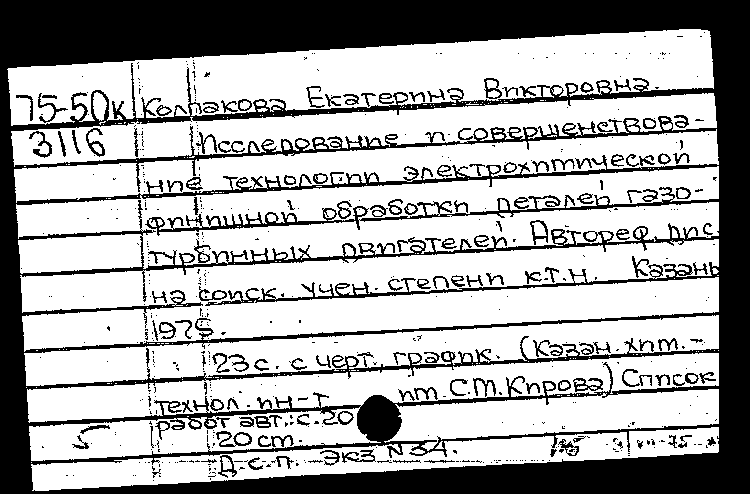 75-50к Колпакова Екатерина Викторовна.
3116 Исследование и совершенствова-
ние технологии электрохимической
финишной обработки деталей газо-
турбинных двигателей. Автореф. дис.
на соиск. учен. степени к.т.н. Казань
1975.
23 с. с черт., график. (Казан. хим.-
технол. ин-т им. С.М. Кирова) Список
работ авт.: с. 20
20 см.
Д.с.п. Экз N 34.